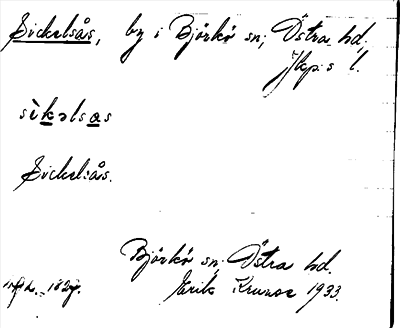 Sickelsås, by i Björkö sn; Östra hd,
Jkp:s l.
sìkəlsas
Sickelsås.
Björkö sn; Östra hd.
1827.
Erik Kruuse 1933.